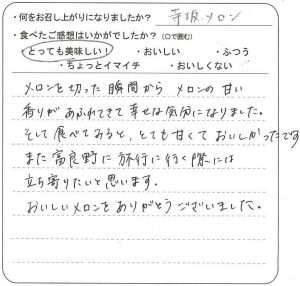 ・何をお召し上がりになりましたか？ 寺坂メロン
・食べたご感想はいかがでしたか？（○で囲む）
とっても美味しい！ ・おいしい ・ふつう
・ちょっとイマイチ ・おいしくない
メロンを切った瞬間から メロンの甘い
香りがあふれてきて幸せな気分になりました。
そして食べてみると、とても甘くておいしかったです
また富良野に旅行に行く際には
立ち寄りたいと思います。
おいしいメロンをありがとうございました。